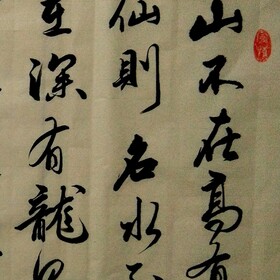 山不在高有
仙則名水不
在深有龍